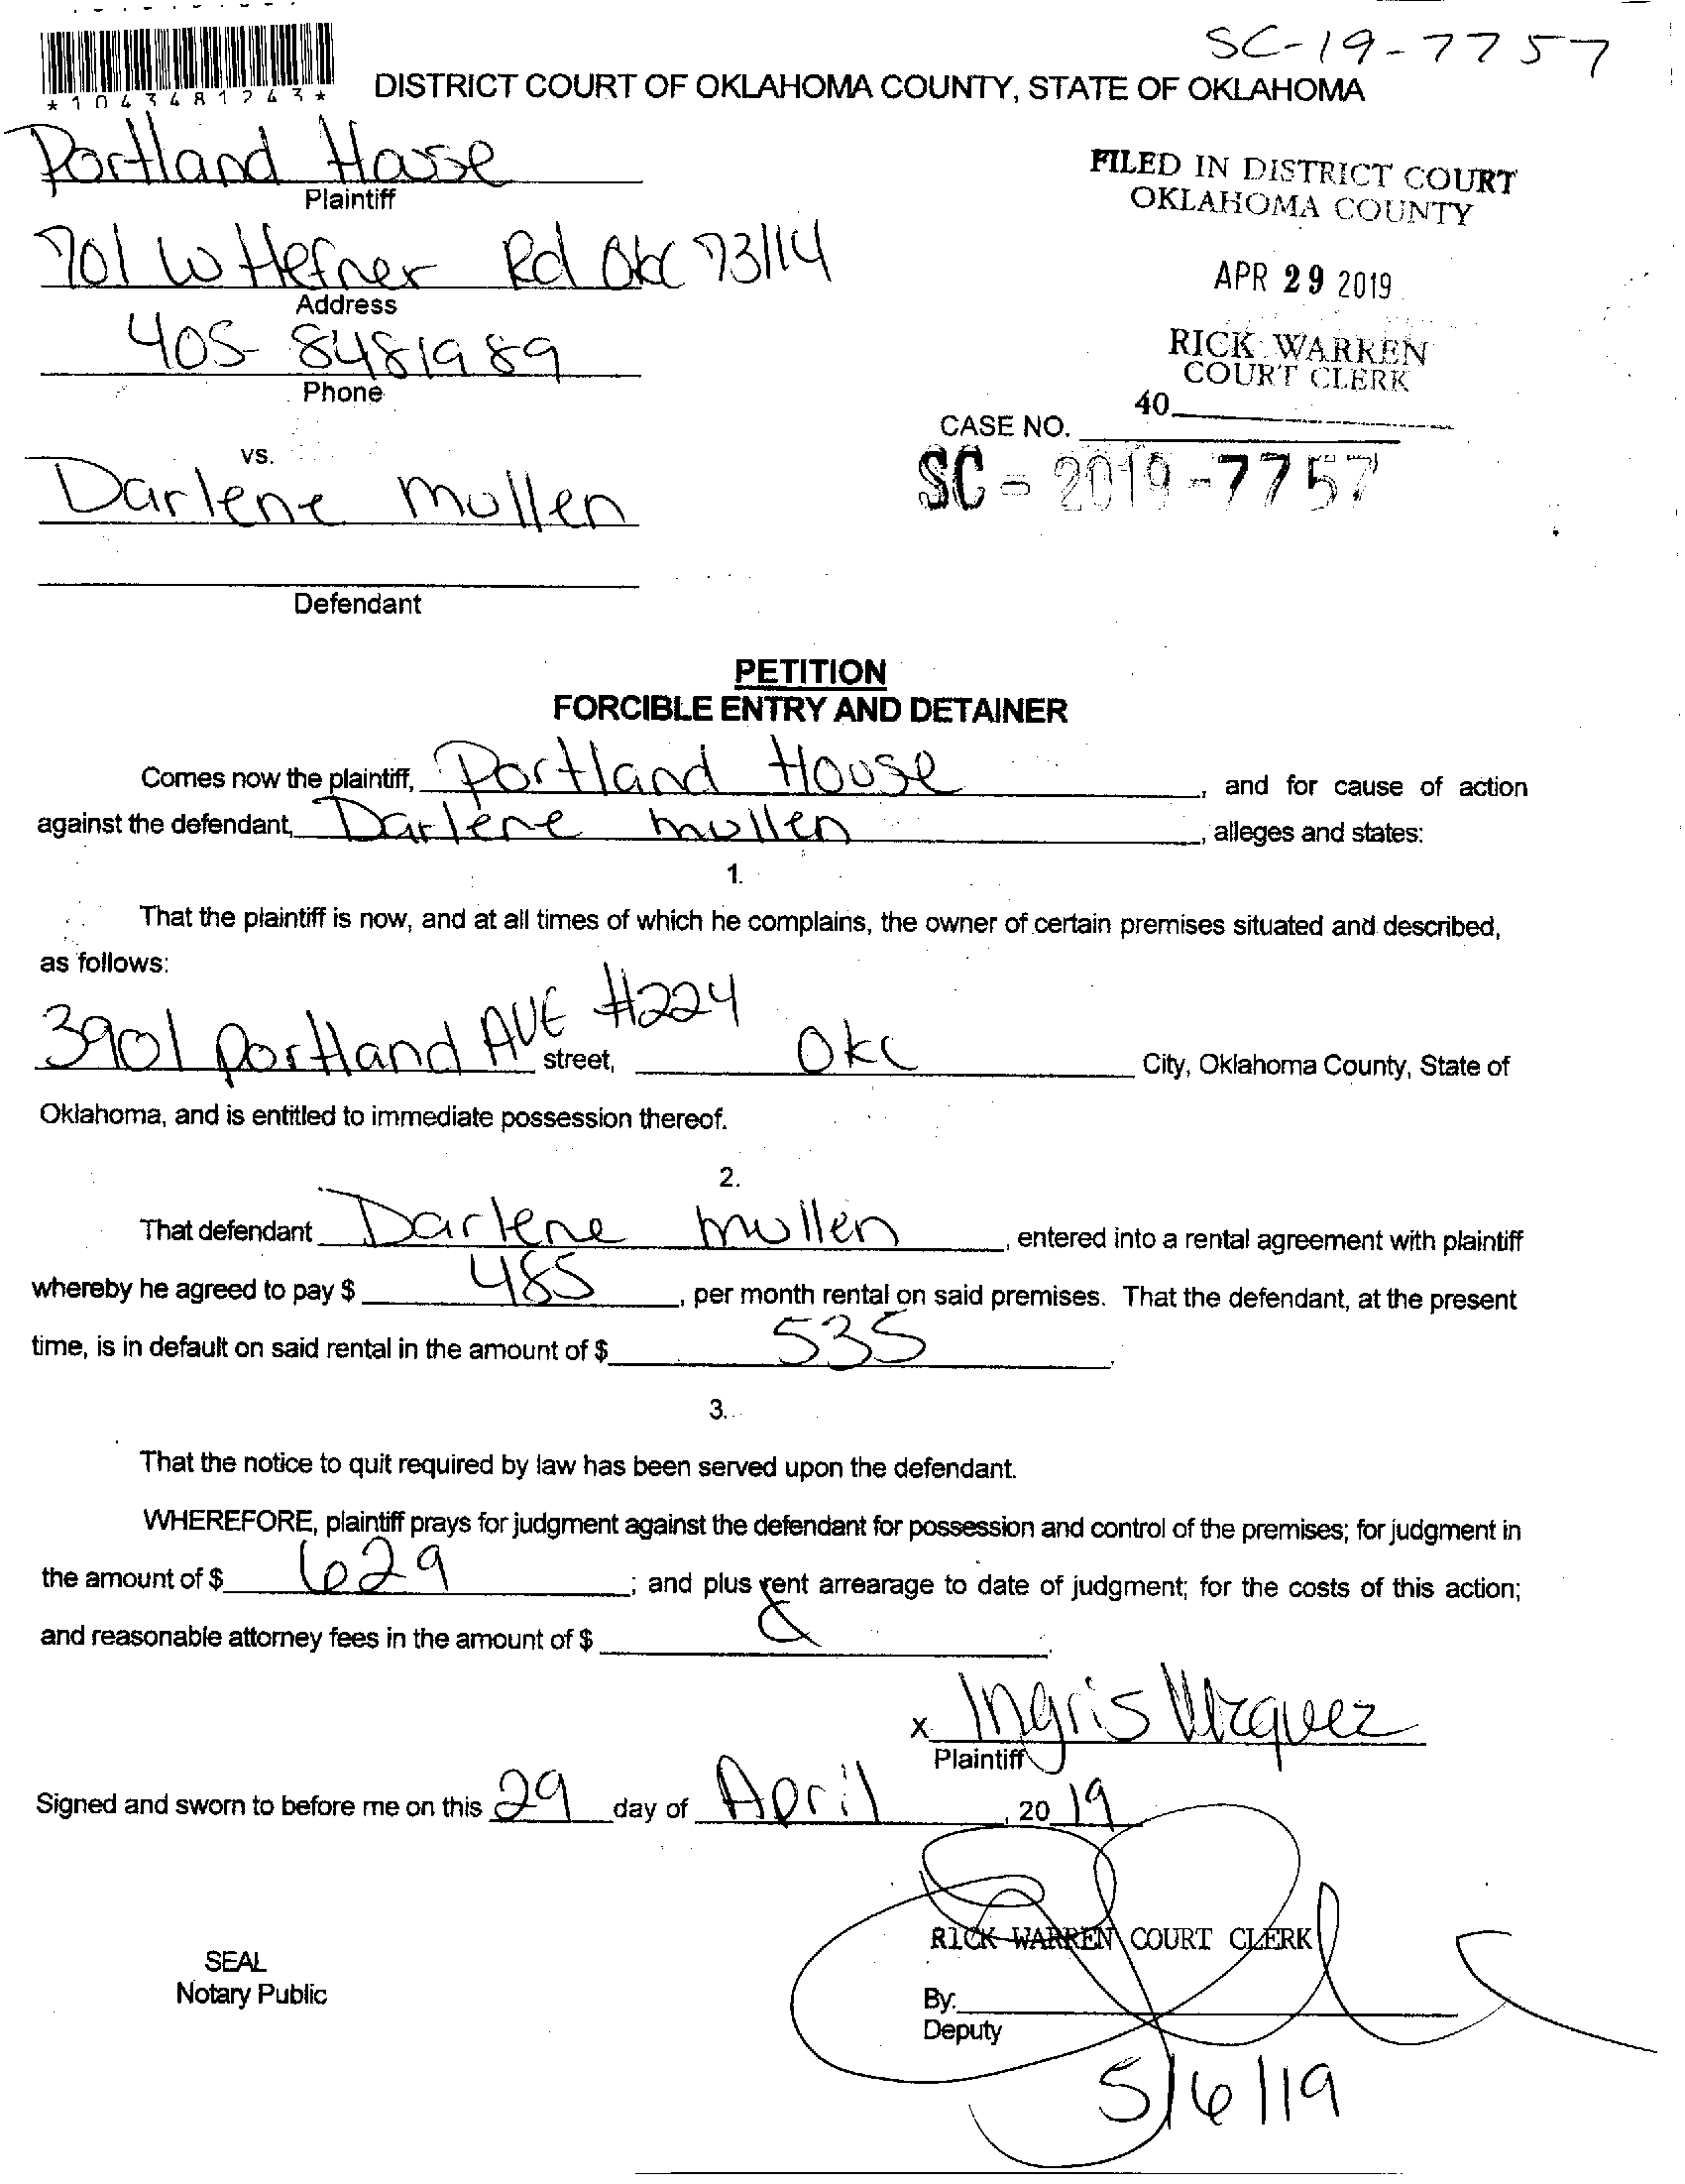 SC-19-7757
*1043481243*
DISTRICT COURT OF OKLAHOMA COUNTY, STATE OF OKLAHOMA
Portland House
Plaintiff
FILED IN DISTRICT COURT
OKLAHOMA COUNTY
701 W Hefner Rd Okc 73114
Address
APR 29 2019
405-8481989
Phone
RICK WARREN
COURT CLERK
40
CASE NO.
SC-2019-7757
vs.
Darlene mullen
Defendant
PETITION
FORCIBLE ENTRY AND DETAINER
Comes now the plaintiff, Portland House, and for cause of action
against the defendant, Darlene mullen, alleges and states:
1.
That the plaintiff is now, and at all times of which he complains, the owner of certain premises situated and described,
as follows:
3901 portland AVE #224 street, Okc City, Oklahoma County, State of
Oklahoma, and is entitled to immediate possession thereof.
2.
That defendant Darlene mullen, entered into a rental agreement with plaintiff
whereby he agreed to pay $ 485, per month rental on said premises. That the defendant, at the present
time, is in default on said rental in the amount of $ 535.
3.
That the notice to quit required by law has been served upon the defendant.
WHEREFORE, plaintiff prays for judgment against the defendant for possession and control of the premises; for judgment in
the amount of $ 629; and plus rent arrearage to date of judgment; for the costs of this action;
and reasonable attorney fees in the amount of $
x Ingris Vazquez
Plaintiff
Signed and sworn to before me on this 29 day of April, 20 19
RICK WARREN COURT CLERK
SEAL
Notary Public
By:
Deputy
5/6/19